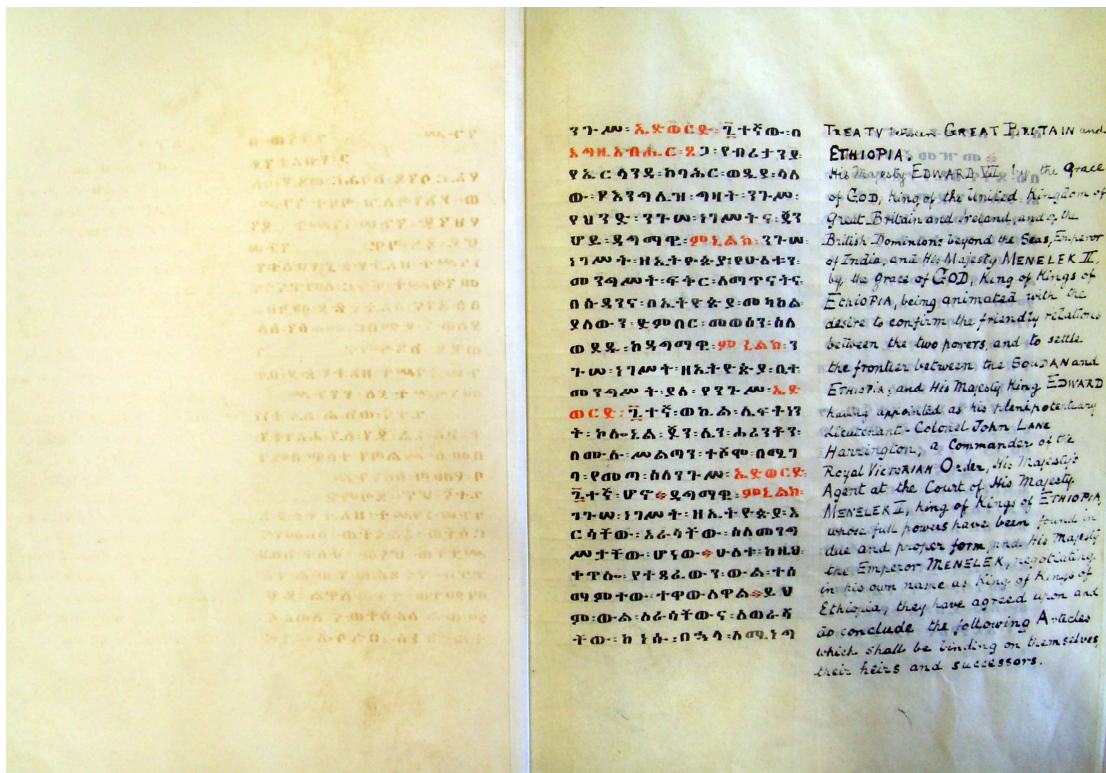 ንጉሡ፡ ኤድወርድ፡ ፯ተኛው፡ በ
እግዚአብሔር፡ ጸጋ፡ የብሪታንያ
የኤርላንዴ፡ ከባሕር፡ ወዲያ፡ ባለ
ው፡ የእንግሊዝ፡ ግዛት፡ ንጉሡ፡
የህንድ፡ ንጉሠ፡ ነገሥትና፡ ጃን
ሆይ፡ ዳግማዊ፡ ምኒልክ፡ ንጉሠ፡
ነገሥት፡ ዘኢትዮጵያ፡ የሁለቱን፡
መንግሥት፡ ፍትር፡ ለማጥናትና፡
በሱዳንና፡ በኢትዮጵያ፡ መካከል
ያለውን፡ ድምበር፡ መወሰን፡ ስለ
ወደዱ፡ ከዳግማዊ፡ ምኒልክ፡ ን
ጉሠ፡ ነገሥት፡ ዘኢትዮጵያ፡ ቤተ
መንግሥት፡ ያለ፡ የንጉሡ፡ ኤድ
ወርድ፡ ፯ተኛ፡ ወኪል፡ ሌፍተነን
ት፡ ኮሎኔል፡ ጆን፡ ሌን፡ ሐሪንቶን፡
በሙሉ፡ ሥልጣን፡ ተሾሞ፡ በሚገ
ባ፡ የመጣ፡ ስለ፡ ንጉሡ፡ ኤድወርድ፡
፯ተኛ፡ ሆኖ። ዳግማዊ፡ ምኒልክ፡
ንጉሠ፡ ነገሥት፡ ዘኢትዮጵያ፡ እ
ርሳቸው፡ ለራሳቸው፡ ስለመንግ
ሥታቸው፡ ሆነው። ሁለቱ፡ ከዚህ፡
ቀጥሎ፡ የተጻፈውን፡ ውል፡ ተስ
ማምተው፡ ተዋውለዋል። ይህ
ም፡ ውል፡ ለራሳቸውና፡ ለወራሻ
ቸው፡ ከነሱ፡ በኋላ፡ ለሚነግ
TREATY between GREAT BRITAIN and
ETHIOPIA.
His Majesty EDWARD VII by the Grace
of GOD, King of the United Kingdom of
Great Britain and Ireland, and of the
British Dominions beyond the Seas, Emperor
of India, and His Majesty MENELEK II,
by the Grace of GOD, King of Kings of
ETHIOPIA, being animated with the
desire to confirm the friendly relations
between the two powers, and to settle
the frontier between the SOUDAN and
ETHIOPIA, and His Majesty King EDWARD
having appointed as his plenipotentiary
Lieutenant-Colonel JOHN LANE
HARRINGTON, a Commander of the
Royal VICTORIAN Order, His Majesty's
Agent at the Court of His Majesty
MENELEK II, King of Kings of ETHIOPIA
whose full powers have been found in
due and proper form, and His Majesty
the Emperor MENELEK, negotiating
in his own name as King of Kings of
Ethiopia, they have agreed upon and
do conclude the following Articles
which shall be binding on themselves,
their heirs and successors.